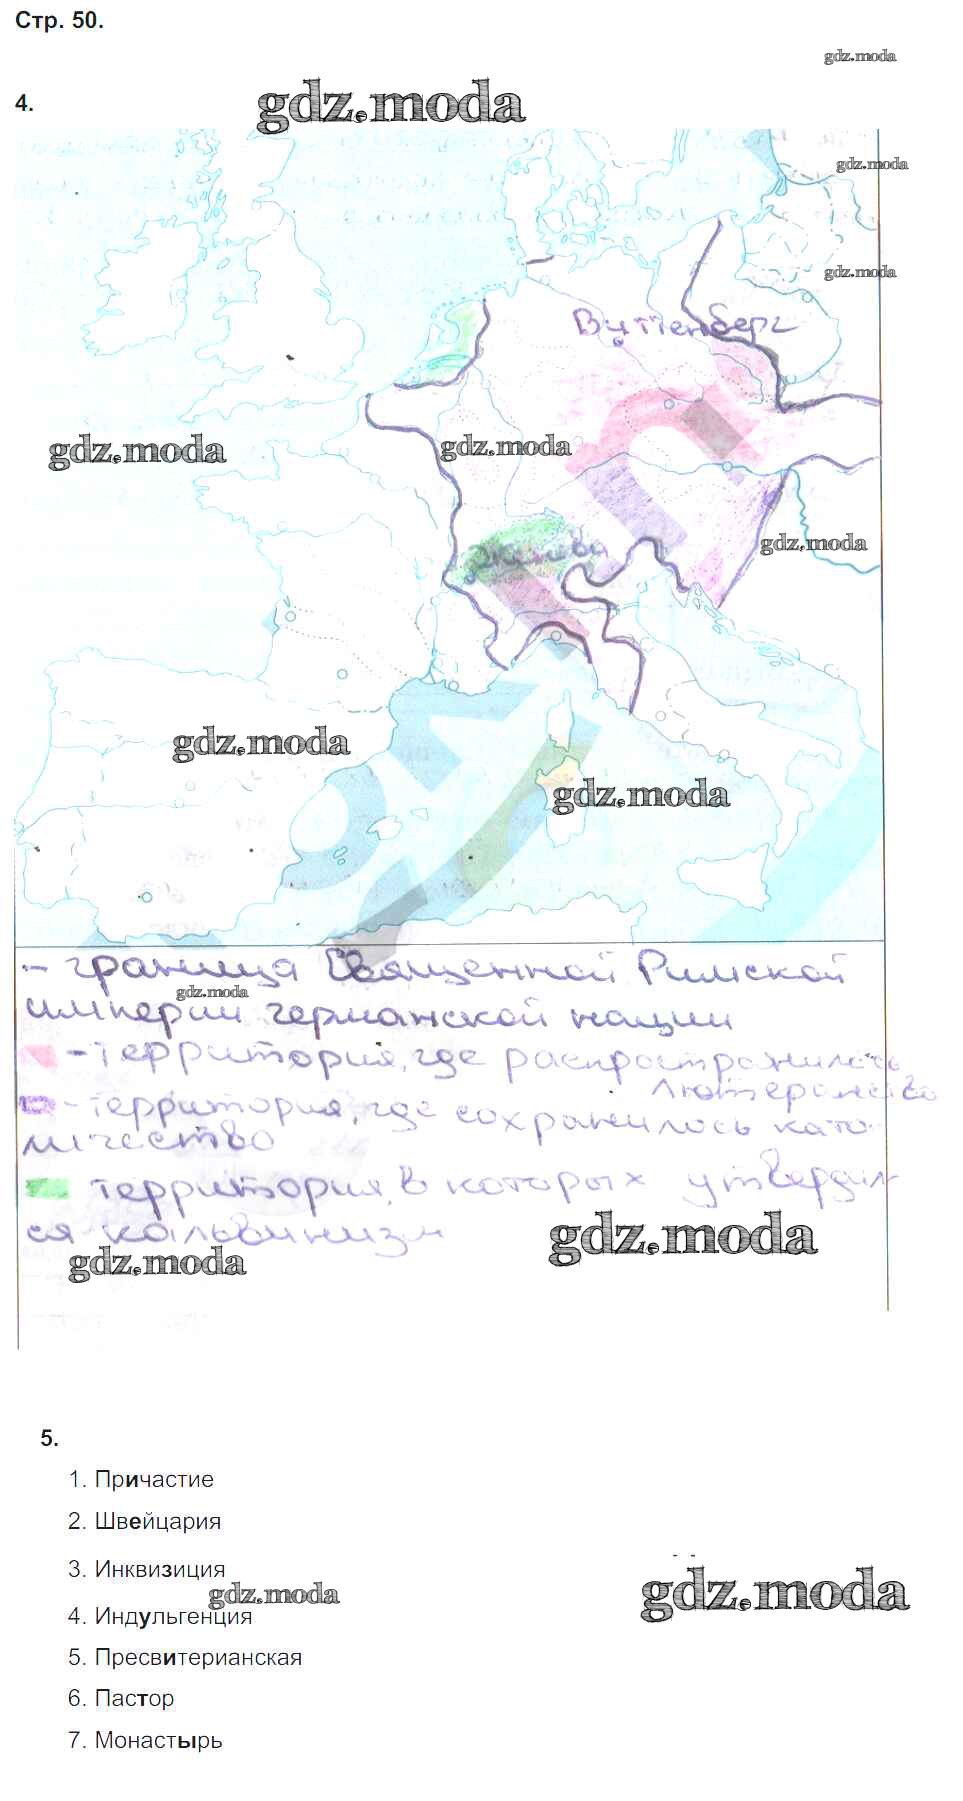 Стр. 50.
gdz.moda
4.
gdz.moda
gdz.moda
gdz.moda
Виттенберг
gdz.moda
gdz.moda
gdz.moda
Женева
gdz.moda
gdz.moda
- граница Священной Римской
gdz.moda
империи германской нации
- территория, где распространилось
лютеранство
- территория, где сохранилось като-
личество
территория, в которых утвердил-
ся кальвинизм
gdz.moda
gdz.moda
5.
1. Причастие
2. Швейцария
3. Инквизиция
gdz.moda
gdz.moda
4. Индульгенция
5. Пресвитерианская
6. Пастор
7. Монастырь